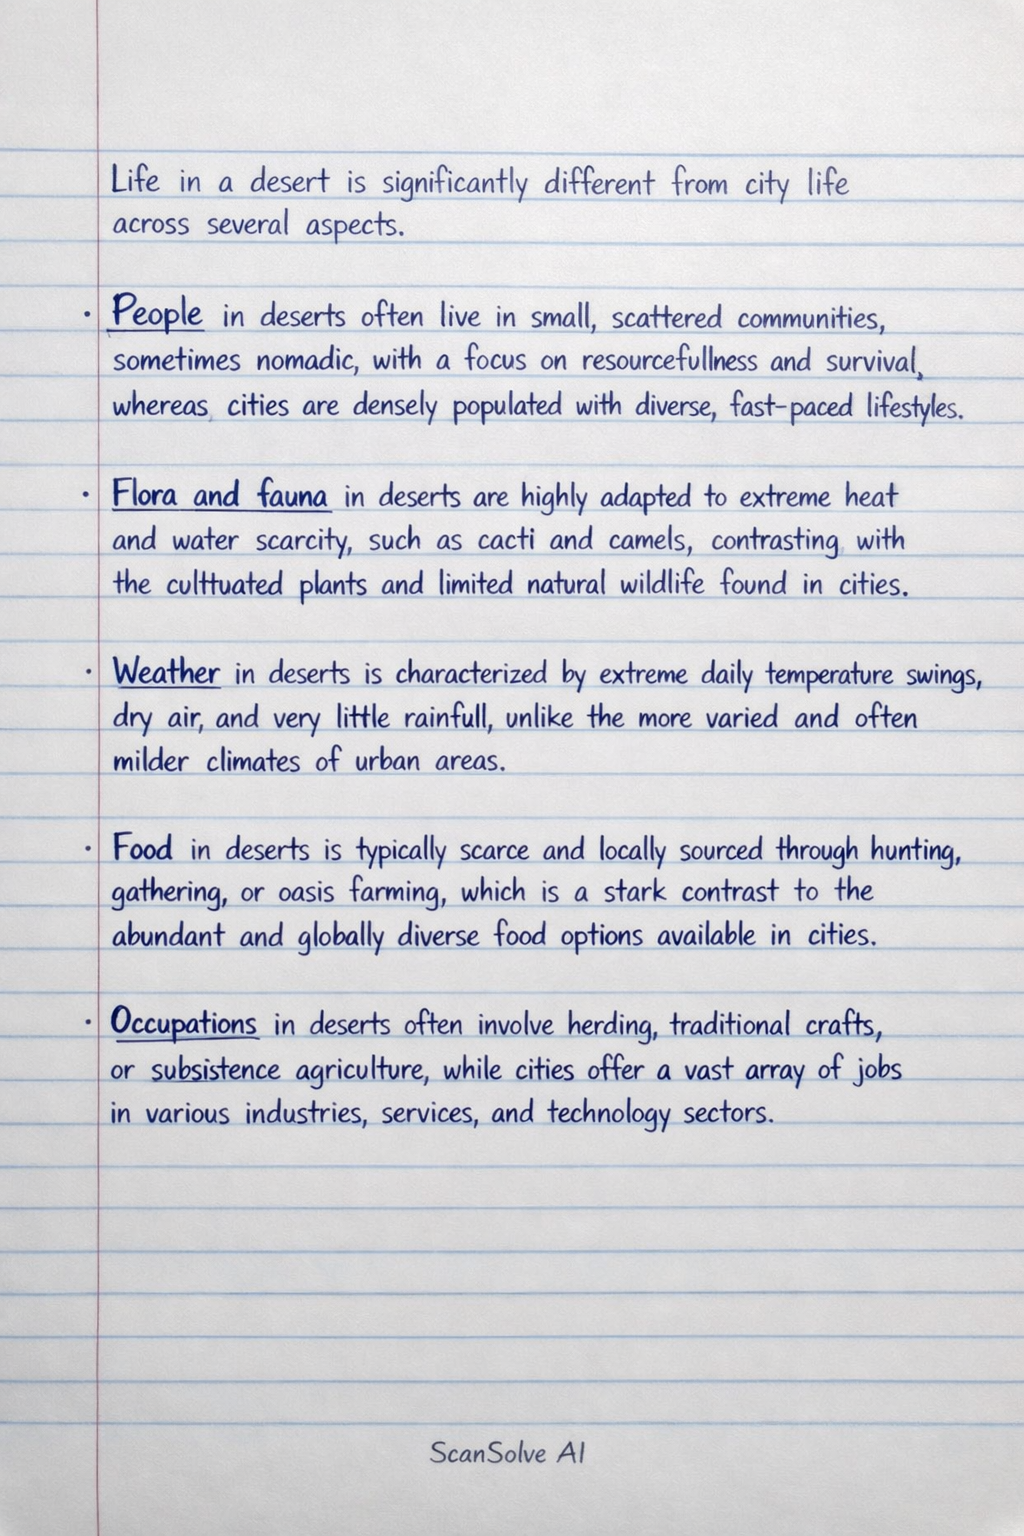 Life in a desert is significantly different from city life
across several aspects.
· People in deserts often live in small, scattered communities,
sometimes nomadic, with a focus on resourcefullness and survival,
whereas cities are densely populated with diverse, fast-paced lifestyles.
· Flora and fauna in deserts are highly adapted to extreme heat
and water scarcity, such as cacti and camels, contrasting with
the culttuated plants and limited natural wildlife found in cities.
· Weather in deserts is characterized by extreme daily temperature swings,
dry air, and very little rainfull, unlike the more varied and often
milder climates of urban areas.
· Food in deserts is typically scarce and locally sourced through hunting,
gathering, or oasis farming, which is a stark contrast to the
abundant and globally diverse food options available in cities.
· Occupations in deserts often involve herding, traditional crafts,
or subsistence agriculture, while cities offer a vast array of jobs
in various industries, services, and technology sectors.
ScanSolve AI